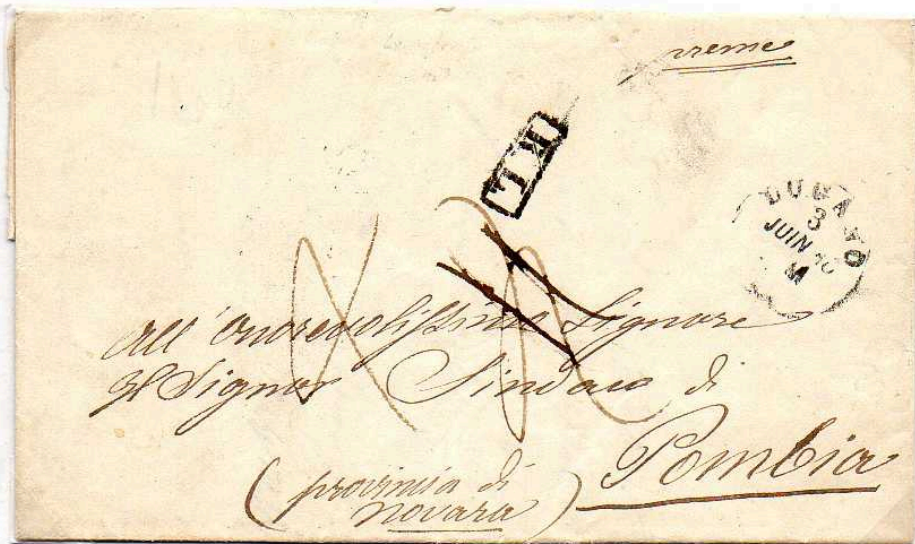 preme
LUGANO
3
JUIN
M
All'Onorevolissimo Signore
Il Signor Sindaco di
Pombia
(provincia di
Novara)